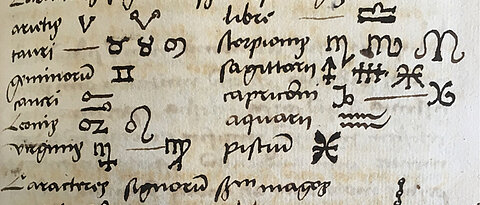 arietis ♈ ♈ libre ♎
tauri — ♉ ♉ ♉ scorpionis ♏ ♏ ♏
geminorū ♊ sagittarii
cancri capricorni ♑ — ♑
Leonis ♌ ♌ aquarii ♒
virginis ♍ — ♍ pisciū ♓
Caracteres signorum magos